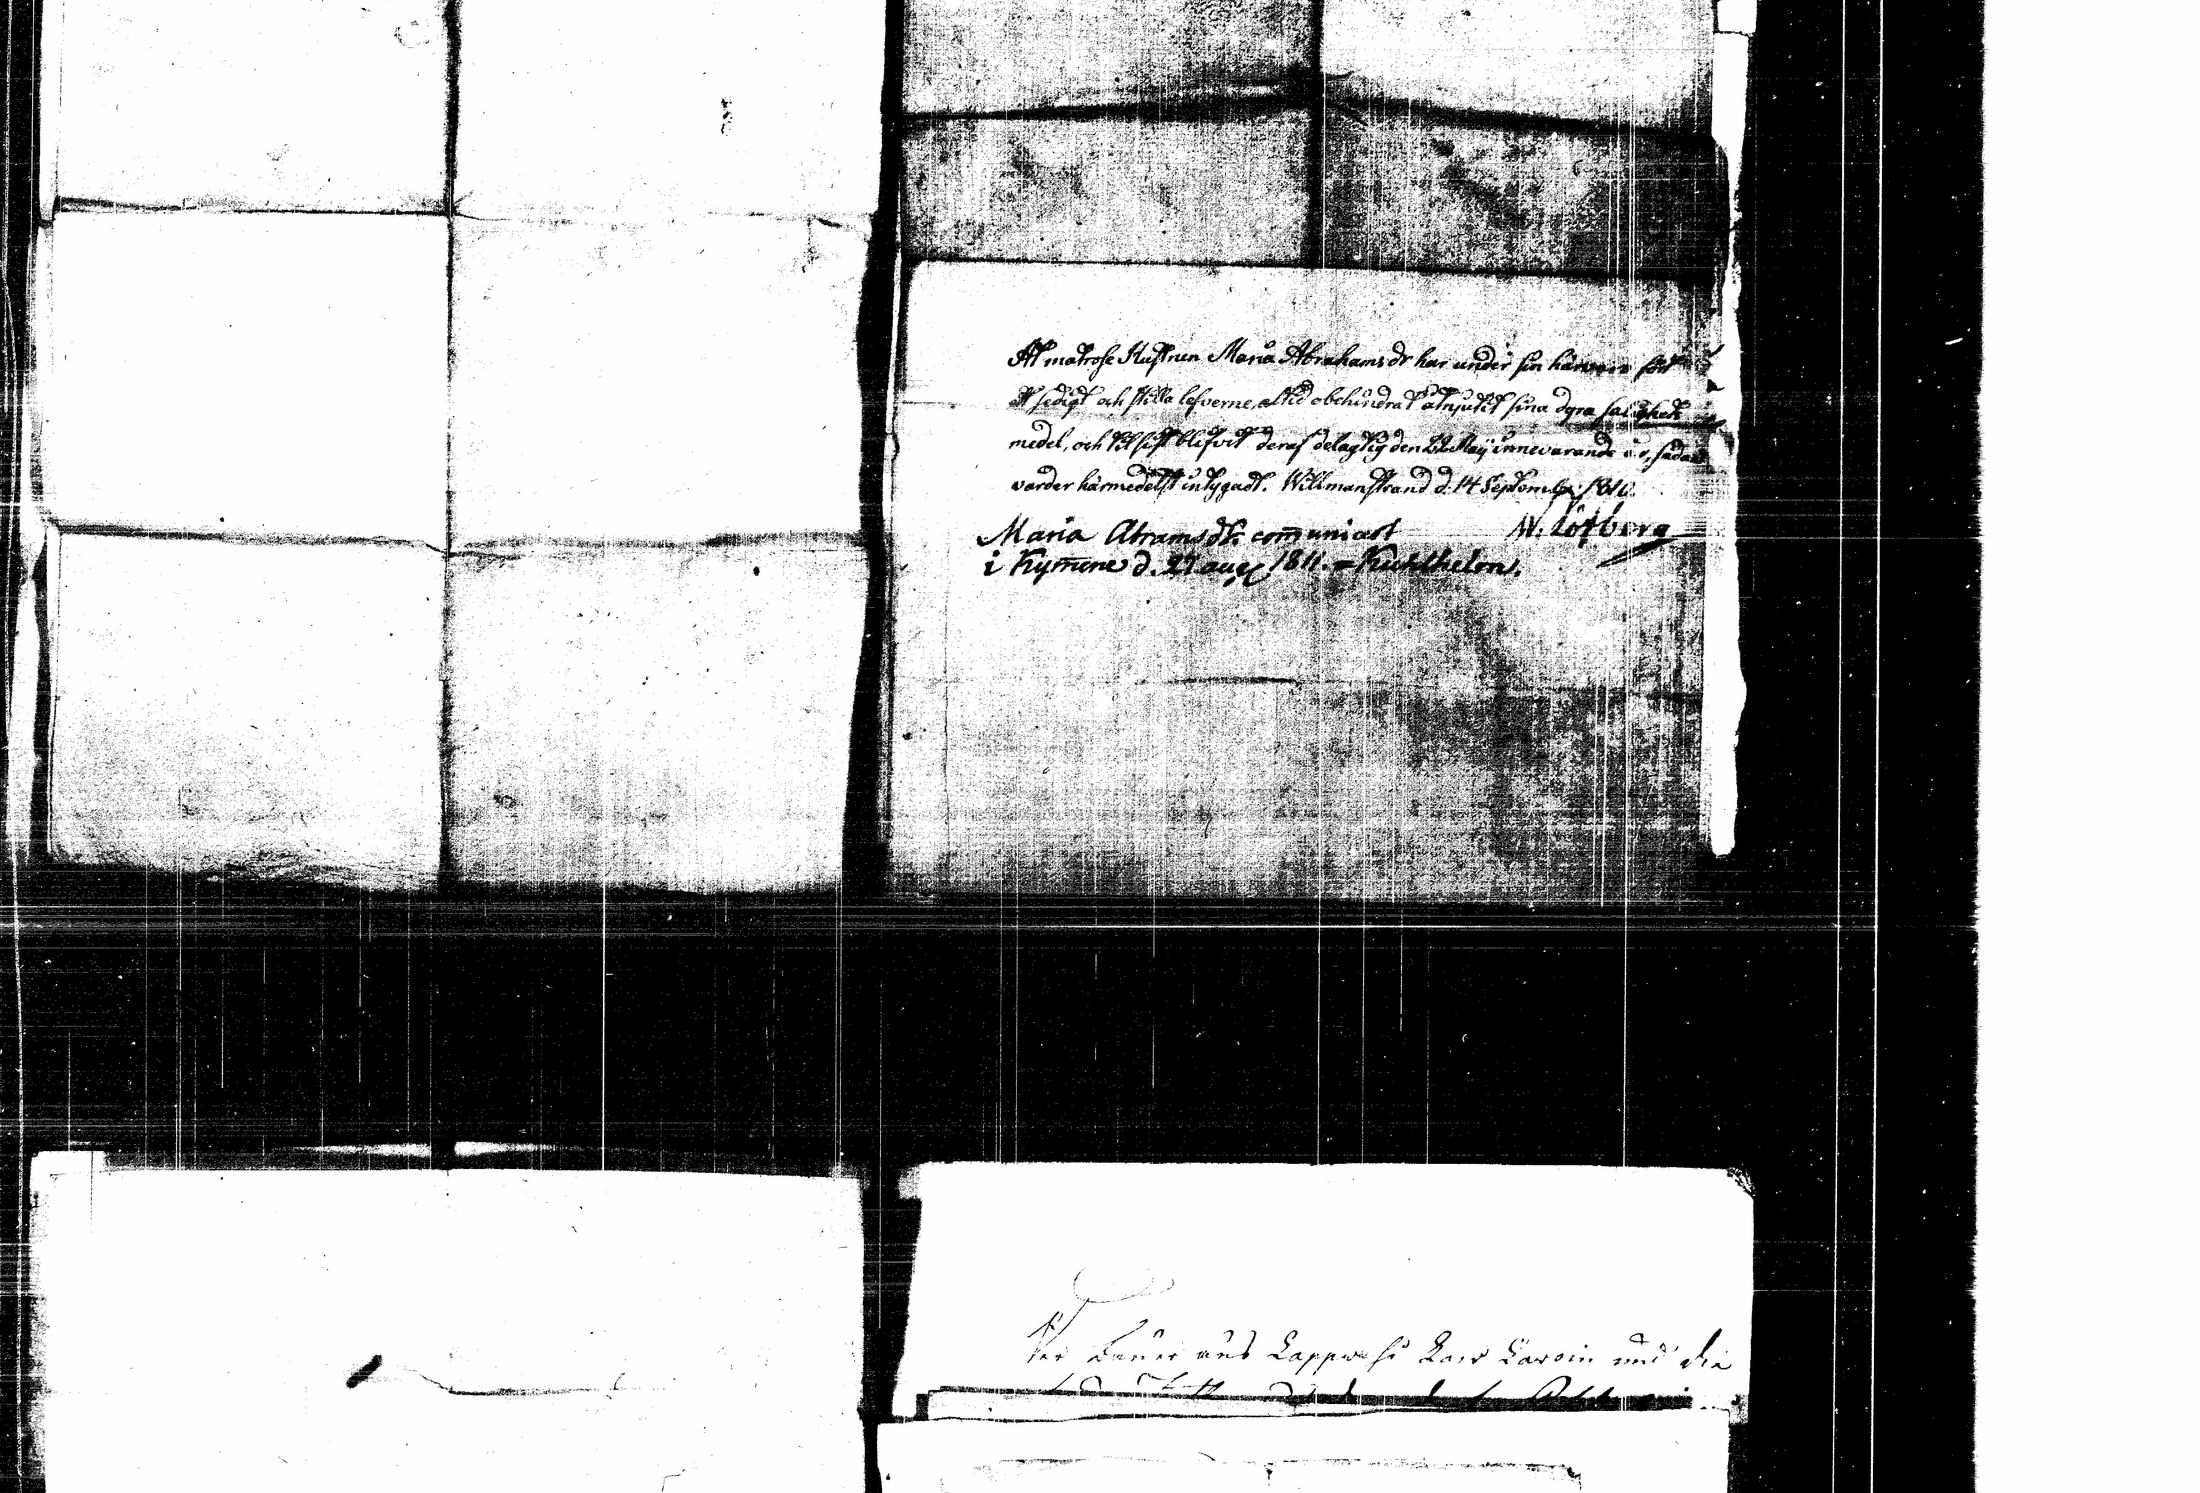 At matrose Hustrun Maria Abrahams dr har under sin härvaro fört
ett sedigt och stilla lefverne, altid obehindrat åtnjutit sina dyra salighets
medel, och sist blifvit deraf delagtig den 22 Maij innevarande år, sådant
varder härmedelst intygadt. Willmanstrand d. 14 Septembr 1810.
W. Löfberg
Maria Abramsdr com̅unicat
i Kym̅ene d. 27 aug 1811. Kuhlhelm.
Der Bauer aus Lappwesi Lars Laroin und die